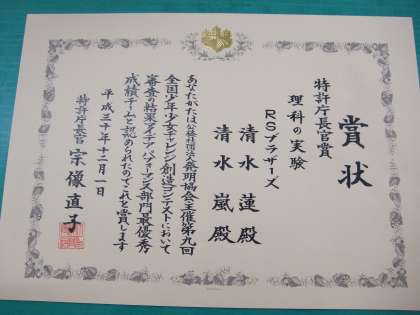 賞状
特許庁長官賞
理科の実験
RSブラザーズ
清水蓮殿
清水嵐殿
あなたがたは公益社団法人発明協会主催第九回
全国少年少女チャレンジ創造コンテストにおいて
審査の結果アイデア・パフォーマンス部門最優秀
成績チームと認められたのでこれを賞します
平成三十年十二月一日
特許庁長官 宗像直子